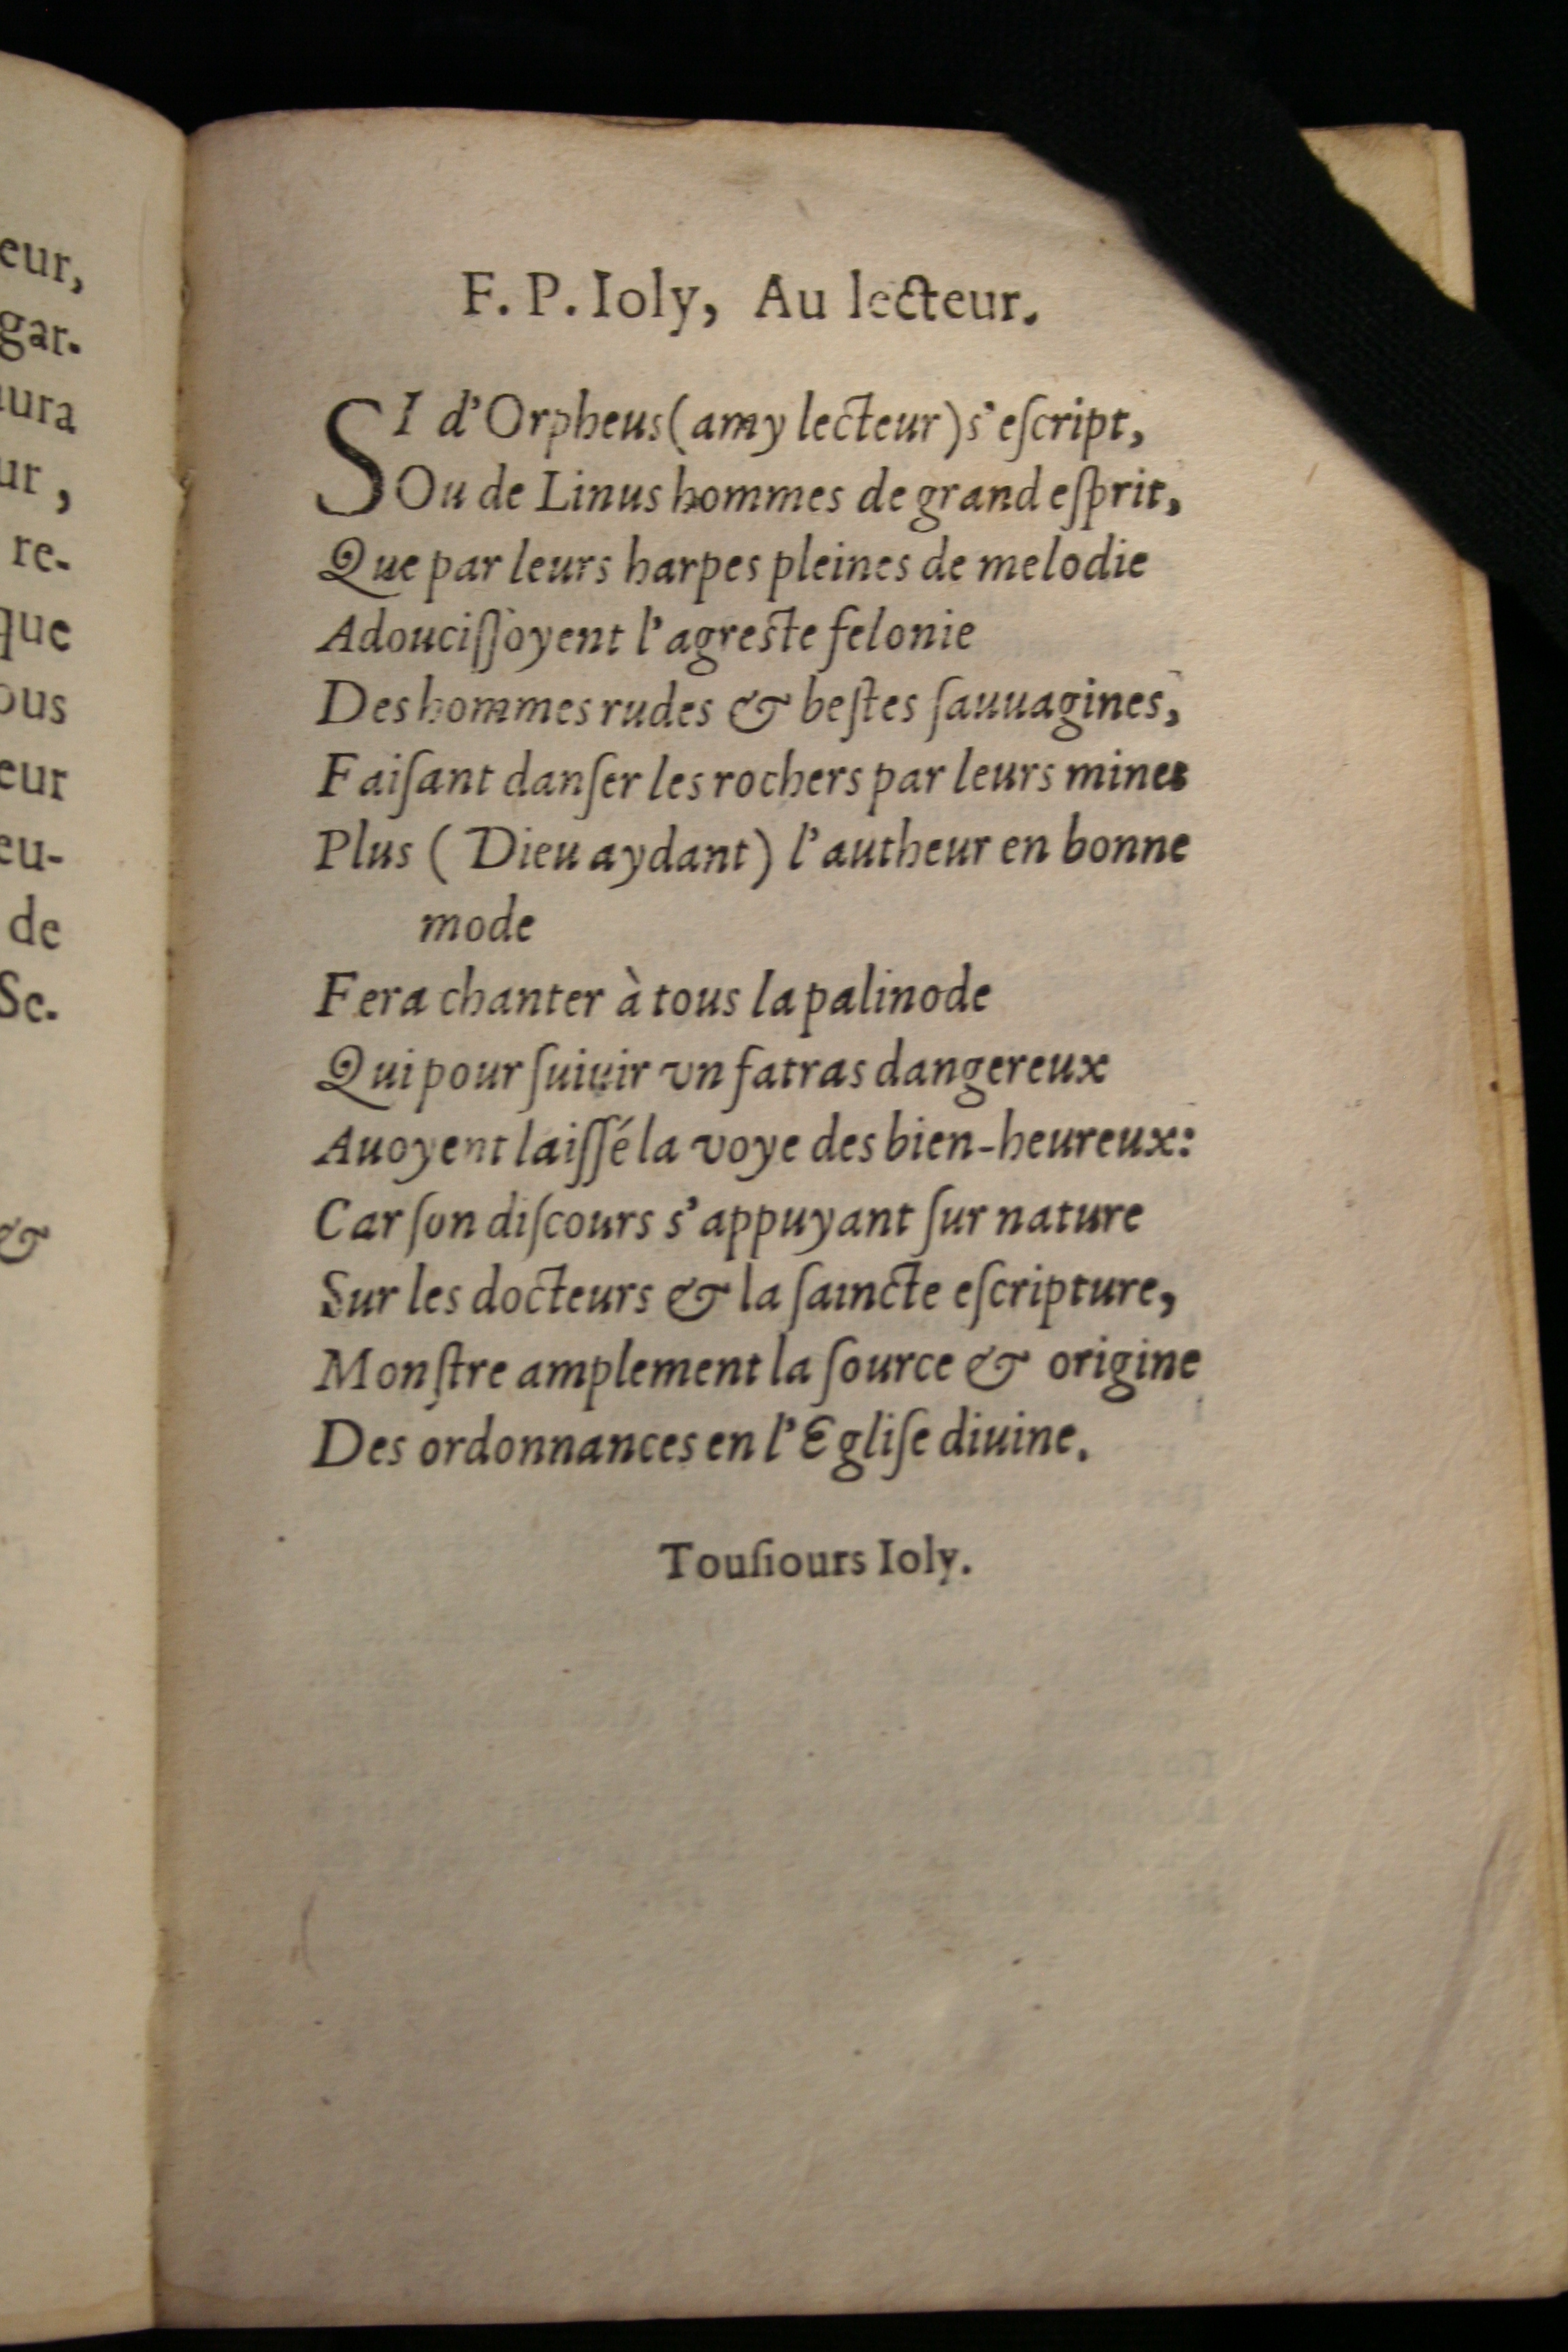 eur,
gar-
ur,
re-
que
ous
eur
eu-
de
Se.
&
F. P. Ioly, Au lecteur.
SI d'Orpheus (amy lecteur) s'eſcript,
Ou de Linus hommes de grand eſprit,
Que par leurs harpes pleines de melodie
Adouciſſoyent l'agreste felonie
Des hommes rudes & beſtes ſauuagines,
Faiſant danſer les rochers par leurs mines
Plus (Dieu aydant) l'autheur en bonne
mode
Fera chanter à tous la palinode
Qui pour ſuiuir vn fatras dangereux
Auoyent laiſſé la voye des bien-heureux:
Car ſon diſcours s'appuyant ſur nature
Sur les docteurs & la ſaincte eſcripture,
Monſtre amplement la ſource & origine
Des ordonnances en l'Egliſe diuine.
Touſiours Ioly.